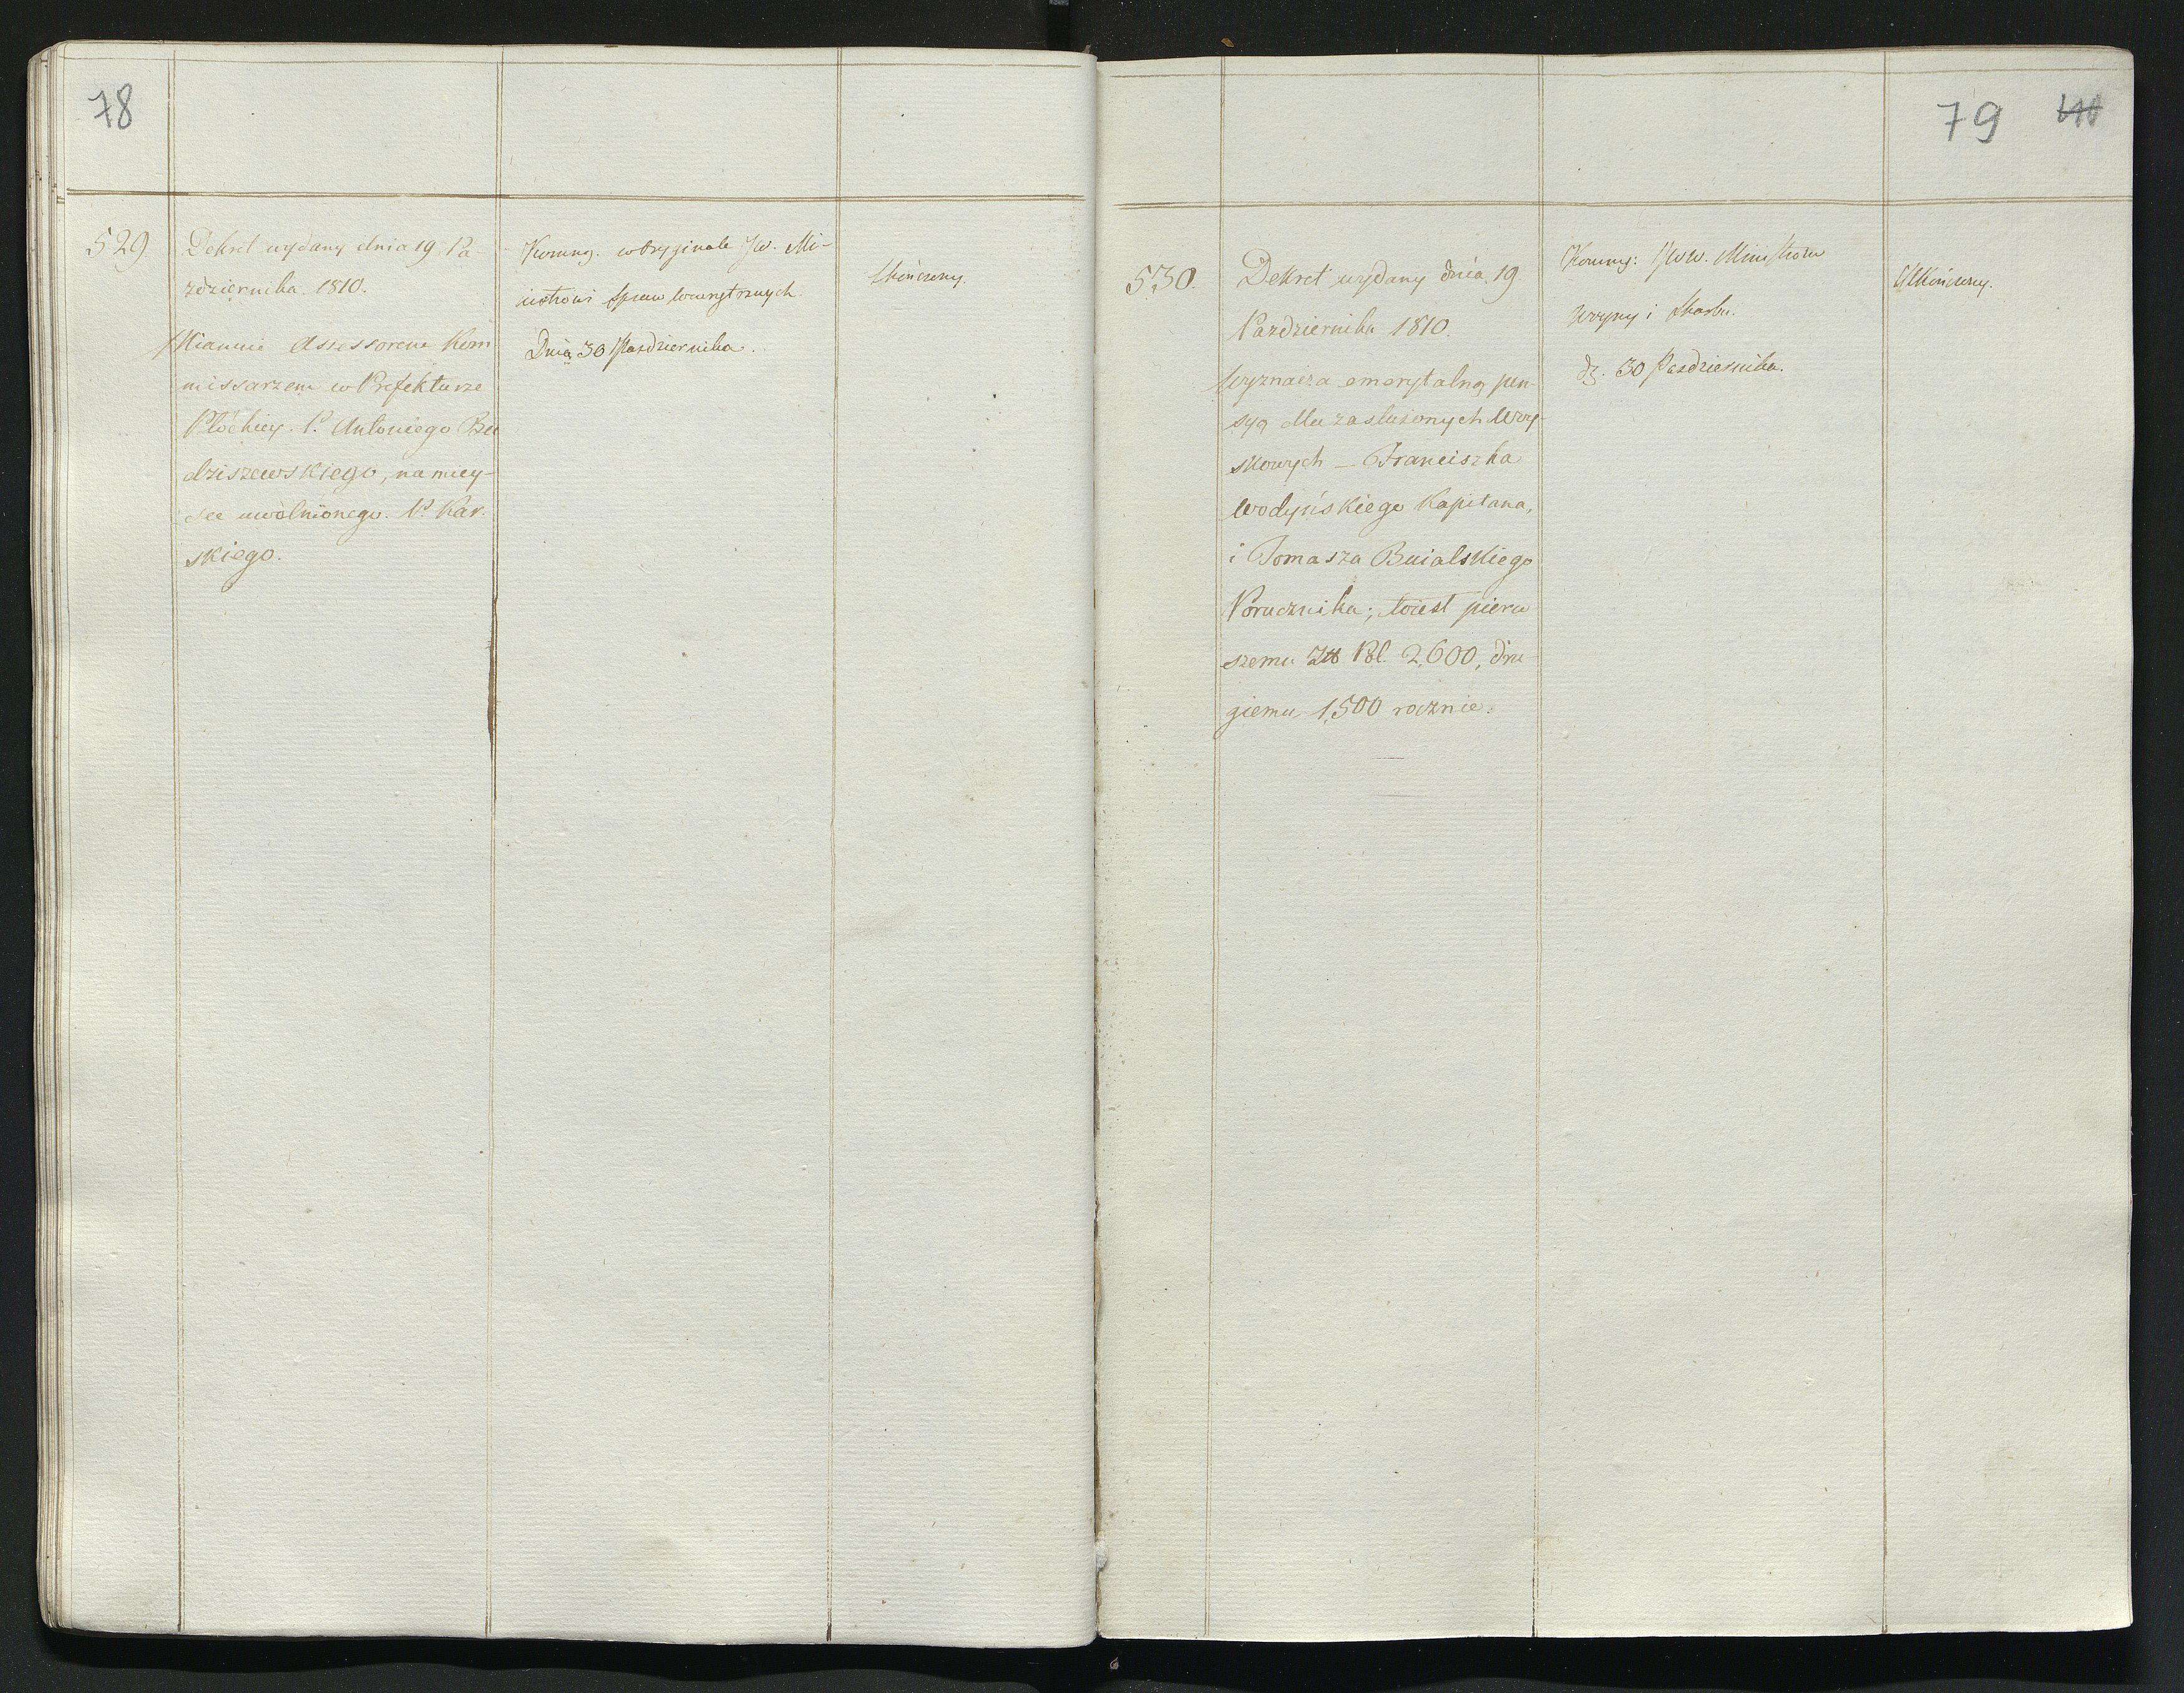 78
529
Dekret wydany dnia 19 Pa-
zdziernika 1810.
Mianuie Assessorem Kom
missarzem w Prefekturze
Płockiey. P. Antoniego Bu
dziszewskiego, na miey-
sce uwolnionego P. Kar-
skiego.
Kommg. w Oryginale JW. Mi-
nistrowi Spraw Wewnętrznych
Dnia 30 Pazdziernika.
Skończony.
79
530.
Dekret wydany dnia 19
Pazdziernika 1810.
Wyznacza emerytalną pen-
syą dla zasłużonych Woy-
skowych — Franciszka
Wodyńskiego Kapitana,
i Tomasza Buialskiego
Porucznika; to iest pierw
szemu Zł Pol. 2,600, dru-
giemu 1,500 rocznie.
Kommg: JWW. Ministrom
Woyny i Skarbu.
d. 30 Pazdziernika.
Ukończony.